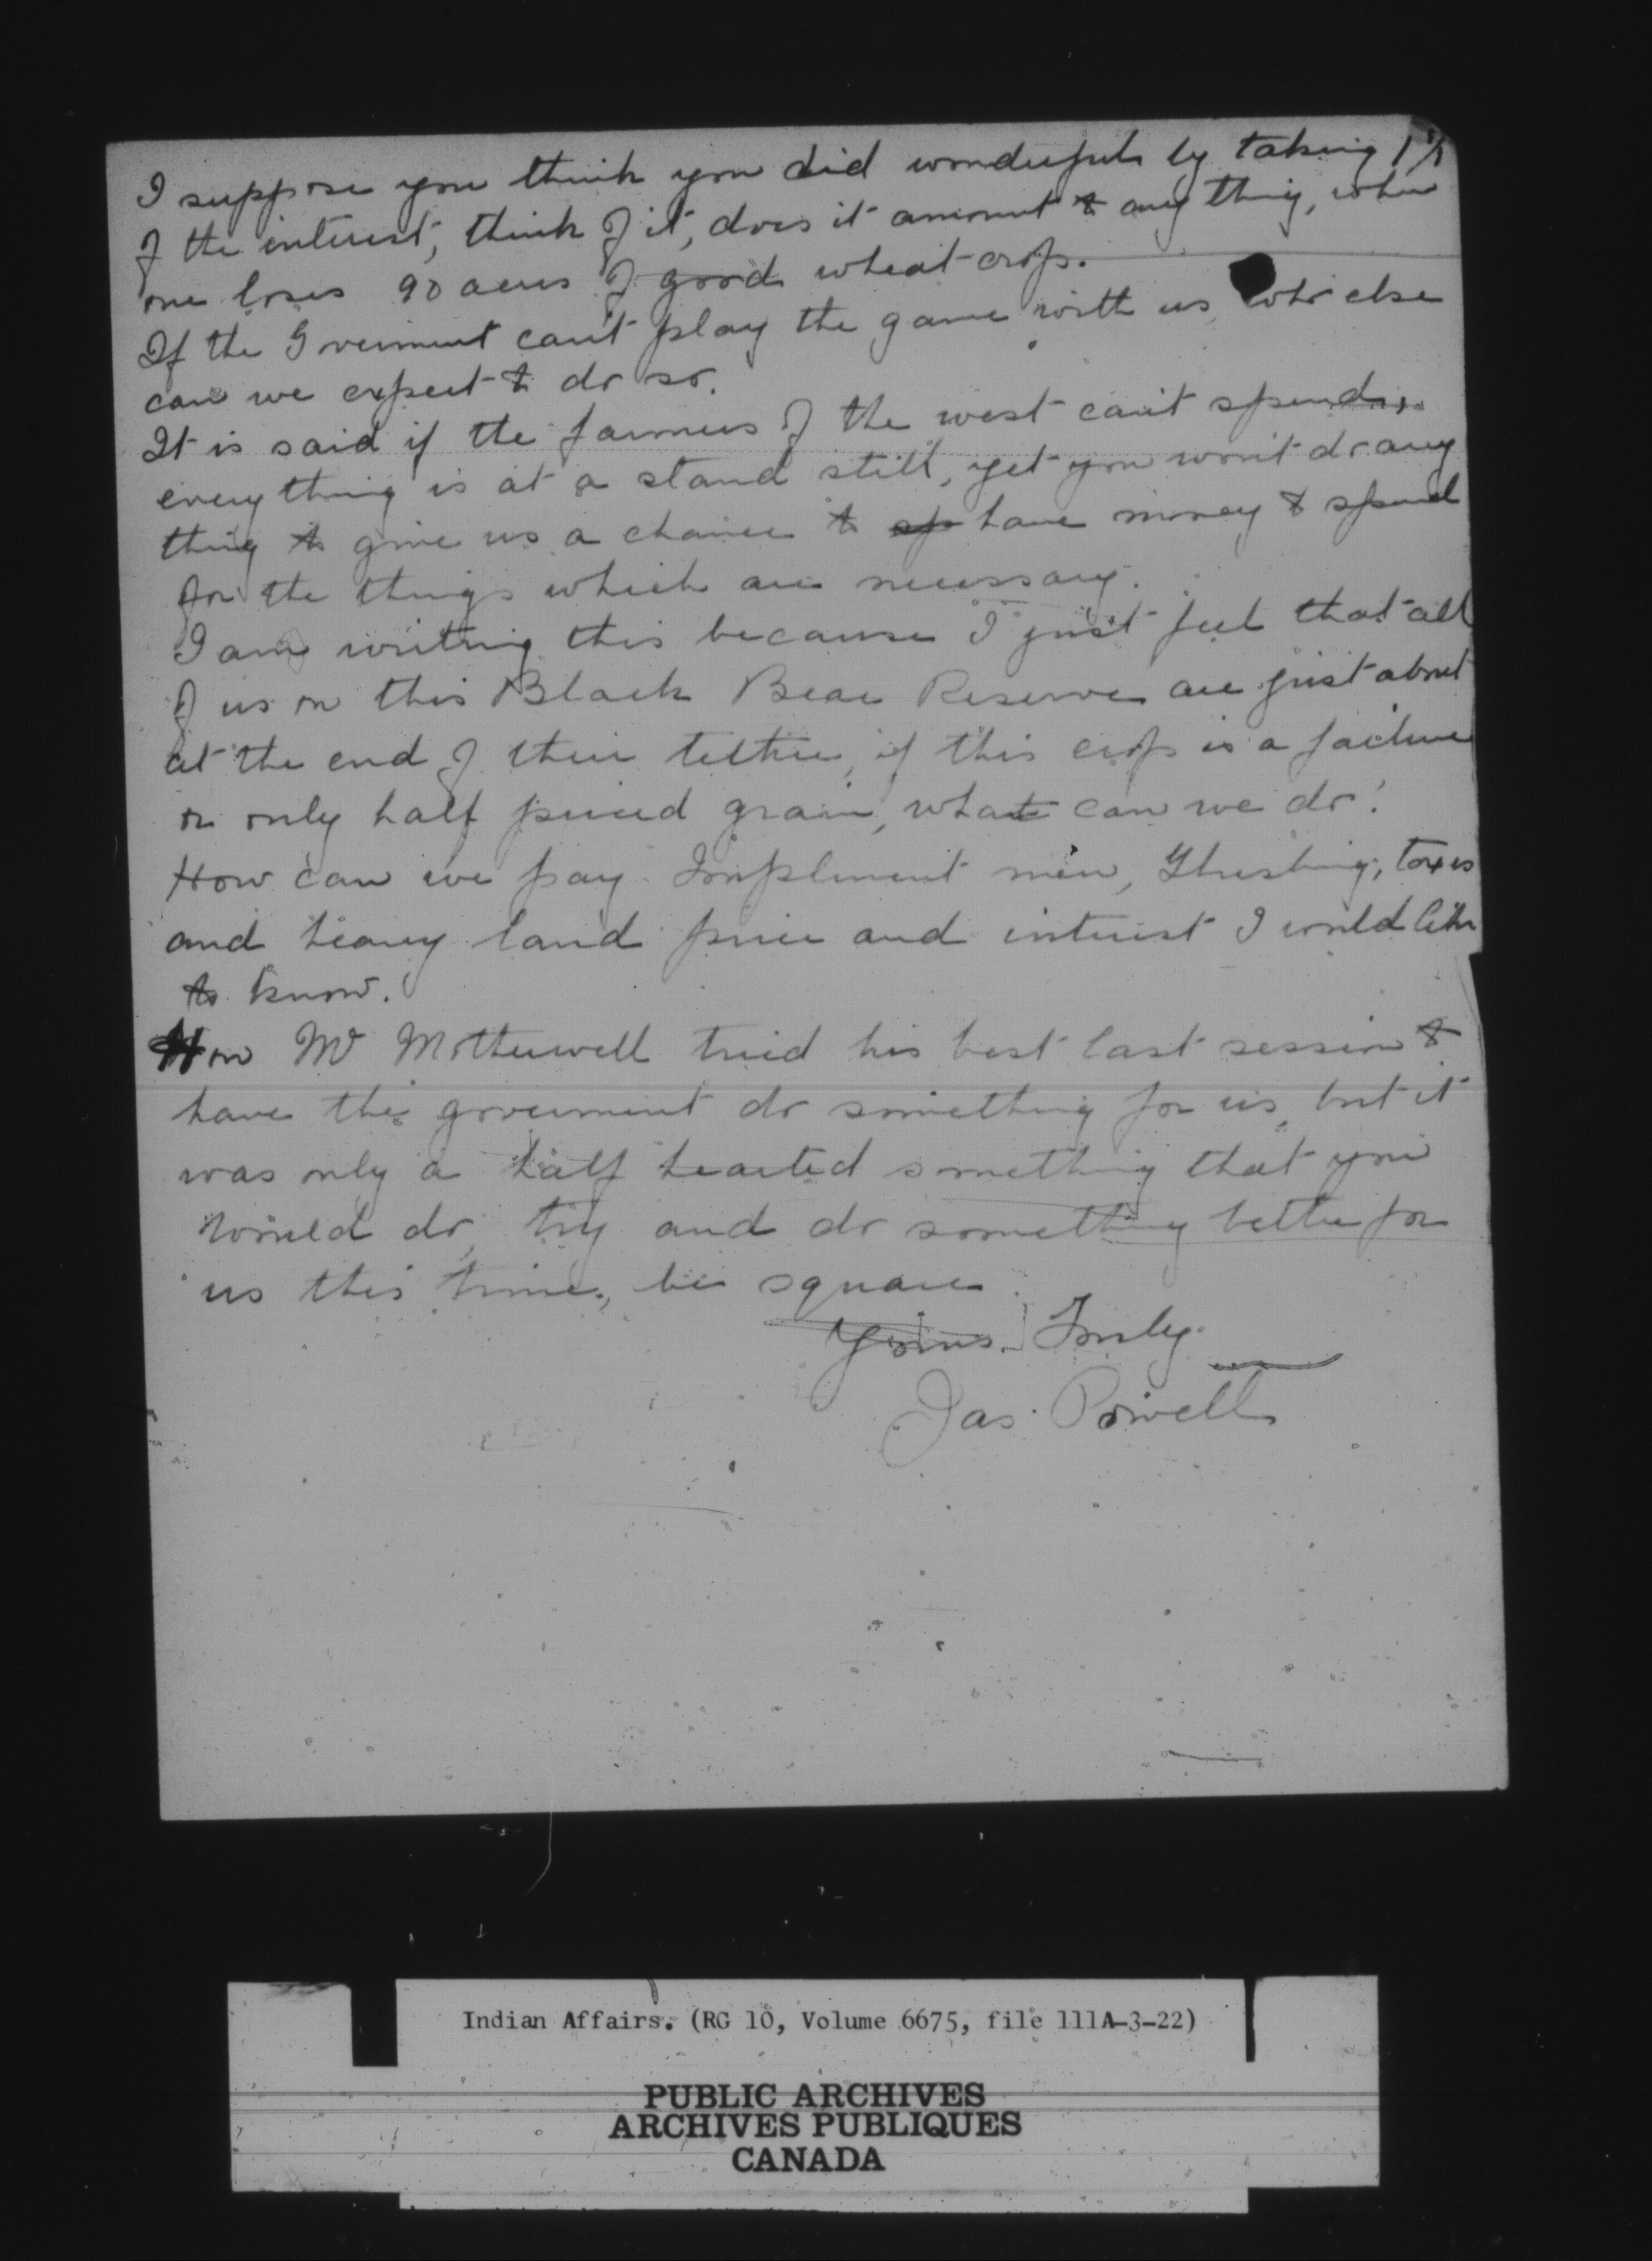 I suppose you think you did wonderfuls by taking 1%
of the interest, think of it, does it amount to any thing, when
one loses 90 acres of good wheat crop.
If the Goverment can't play the game with us, who else
can we expect to do so.
It is said if the farmers of the west can't spend,
every thing is at a stand still, yet you won't do any
thing to give us a chance to sp have money to spend
for the things which are necessary.
I am writing this because I just feel that all
of us on this Black Bear Reserve are just about
at the end of their tether, if this crop is a failure
or only half priced grain, what can we do?
How can we pay Implement men, Threshing, taxes
and heavy land price and interest I would like
to know.
Hon Mr Motherwell tried his best last session to
have the goverment do something for us, but it
was only a half hearted something that you
would do, try and do something better for
us this time, be square.
Yours Truly
Jas. Powell
Indian Affairs. (RG 10, Volume 6675, file 111A-3-22)
PUBLIC ARCHIVES
ARCHIVES PUBLIQUES
CANADA